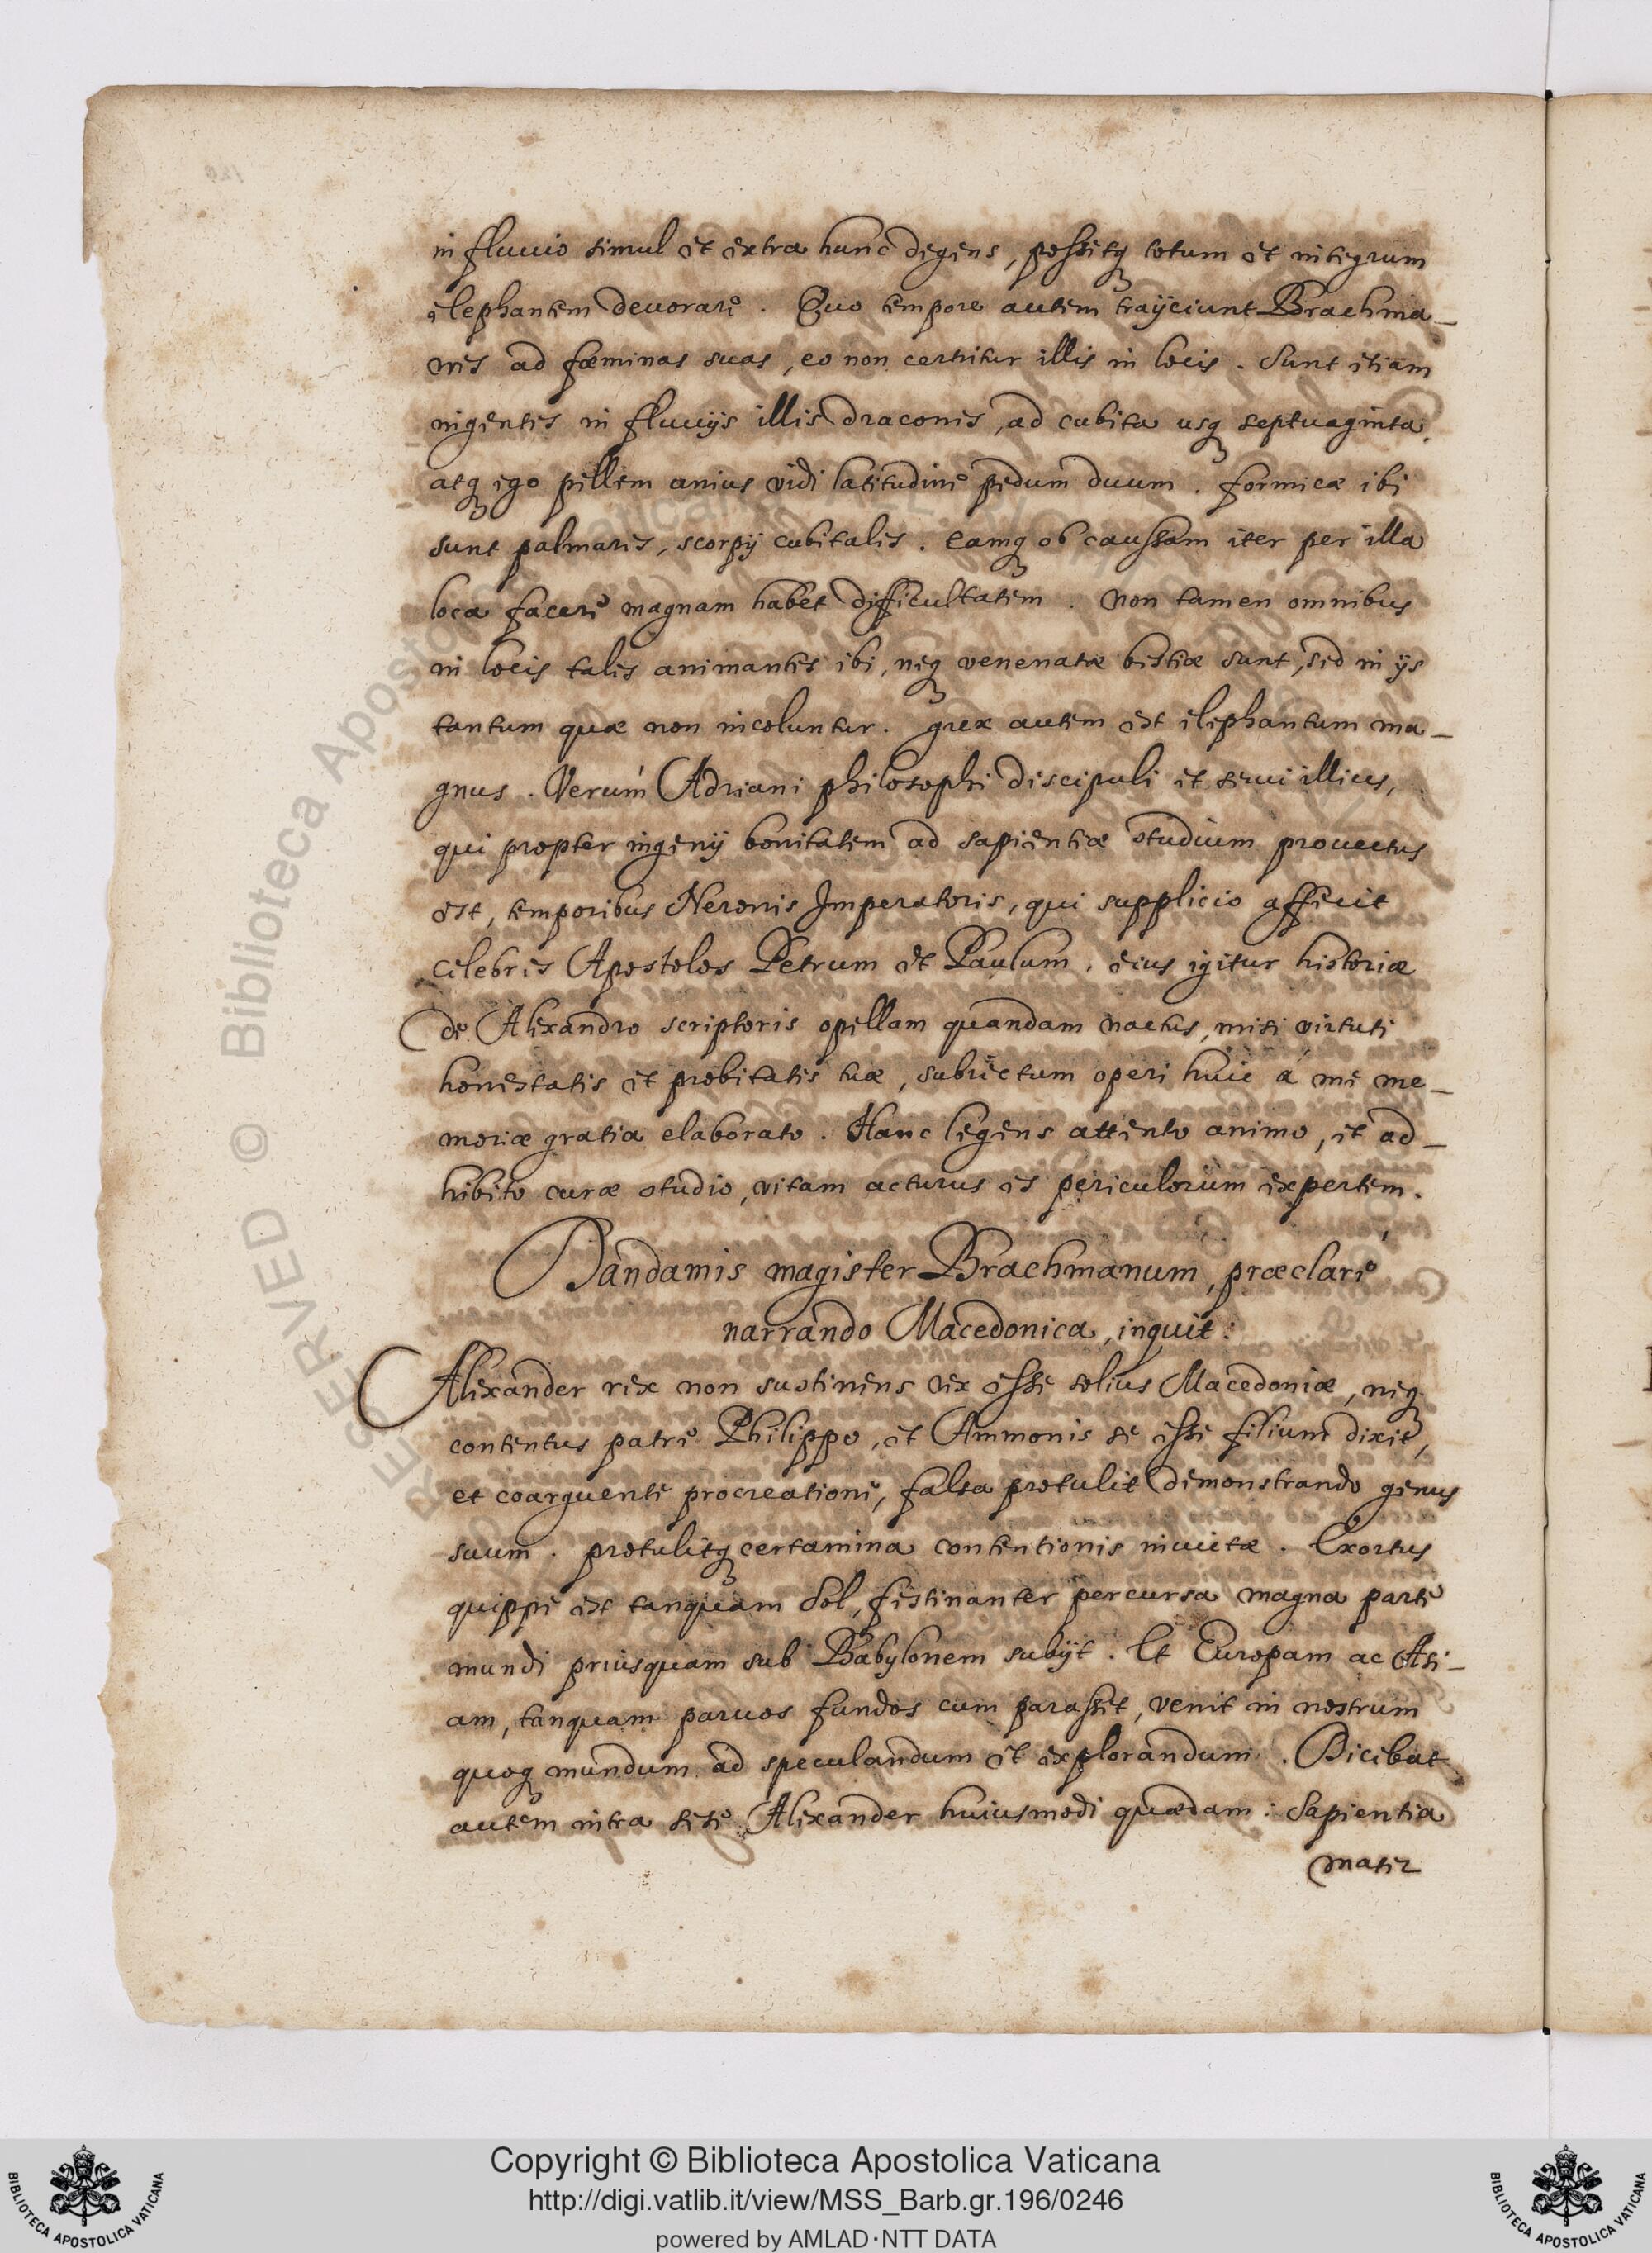 in fluuio simul et extra hunc degens, possitq; totum et integrum
elephantem deuorare. Quo tempore autem traijciunt Brachma_
nes ad fœminas suas, eo non cernitur illis in locis. Sunt etiam
ingentes in fluuijs illis dracones, ad cubita usq; septuaginta,
atq; ego pellem unius vidi latitudine pedum duum. formicæ ibi
sunt palmares, scorpij cubitales. eamq; ob caussam iter per illa
loca facere magnam habet difficultatem. Non tamen omnibus
in locis tales animantes ibi, neq; venenatæ bestiæ sunt, sed in ijs
tantum quæ non incoluntur. grex autem est elephantum ma_
gnus. Verum Adriani philosophi discipuli et serui illius,
qui propter ingenij bonitatem ad sapientiæ studium prouectus
est, temporibus Neronis Imperatoris, qui supplicio affecit
celebres Apostolos Petrum et Paulum, eius igitur historiæ
de Alexandro scriptoris opellam quandam nactus, misi virtuti
honestatis et probitatis tuæ, subiectum operi huic á me me_
moriæ gratia elaborato. Hanc legens attento animo, et ad_
hibito curæ studio, vitam acturus es periculorum expertem.
Dandamis magister Brachmanum, præclare
narrando Macedonica, inquit:
Alexander rex non sustinens rex esse solius Macedoniæ, neq;
contentus patre Philippo, et Ammonis se esse filium dixit,
et coarguente procreatione, falsa protulit demonstrando genus
suum. protulitq; certamina contentionis inuictæ. Exortus
quippe est tanquam Sol, festinanter percursa magna parte
mundi priusquam sub Babylonem subijt. Et Europam ac Asi_
am, tanquam paruos fundos cum parasset, venit in nostrum
quoq; mundum ad speculandum et explorandum. Dicebat
autem intra sese Alexander huiusmodi quædam: Sapientia
mater
Copyright © Biblioteca Apostolica Vaticana
http://digi.vatlib.it/view/MSS_Barb.gr.196/0246
powered by AMLAD·NTT DATA
BIBLIOTECA APOSTOLICA VATICANA
BIBLIOTECA APOSTOLICA VATICANA